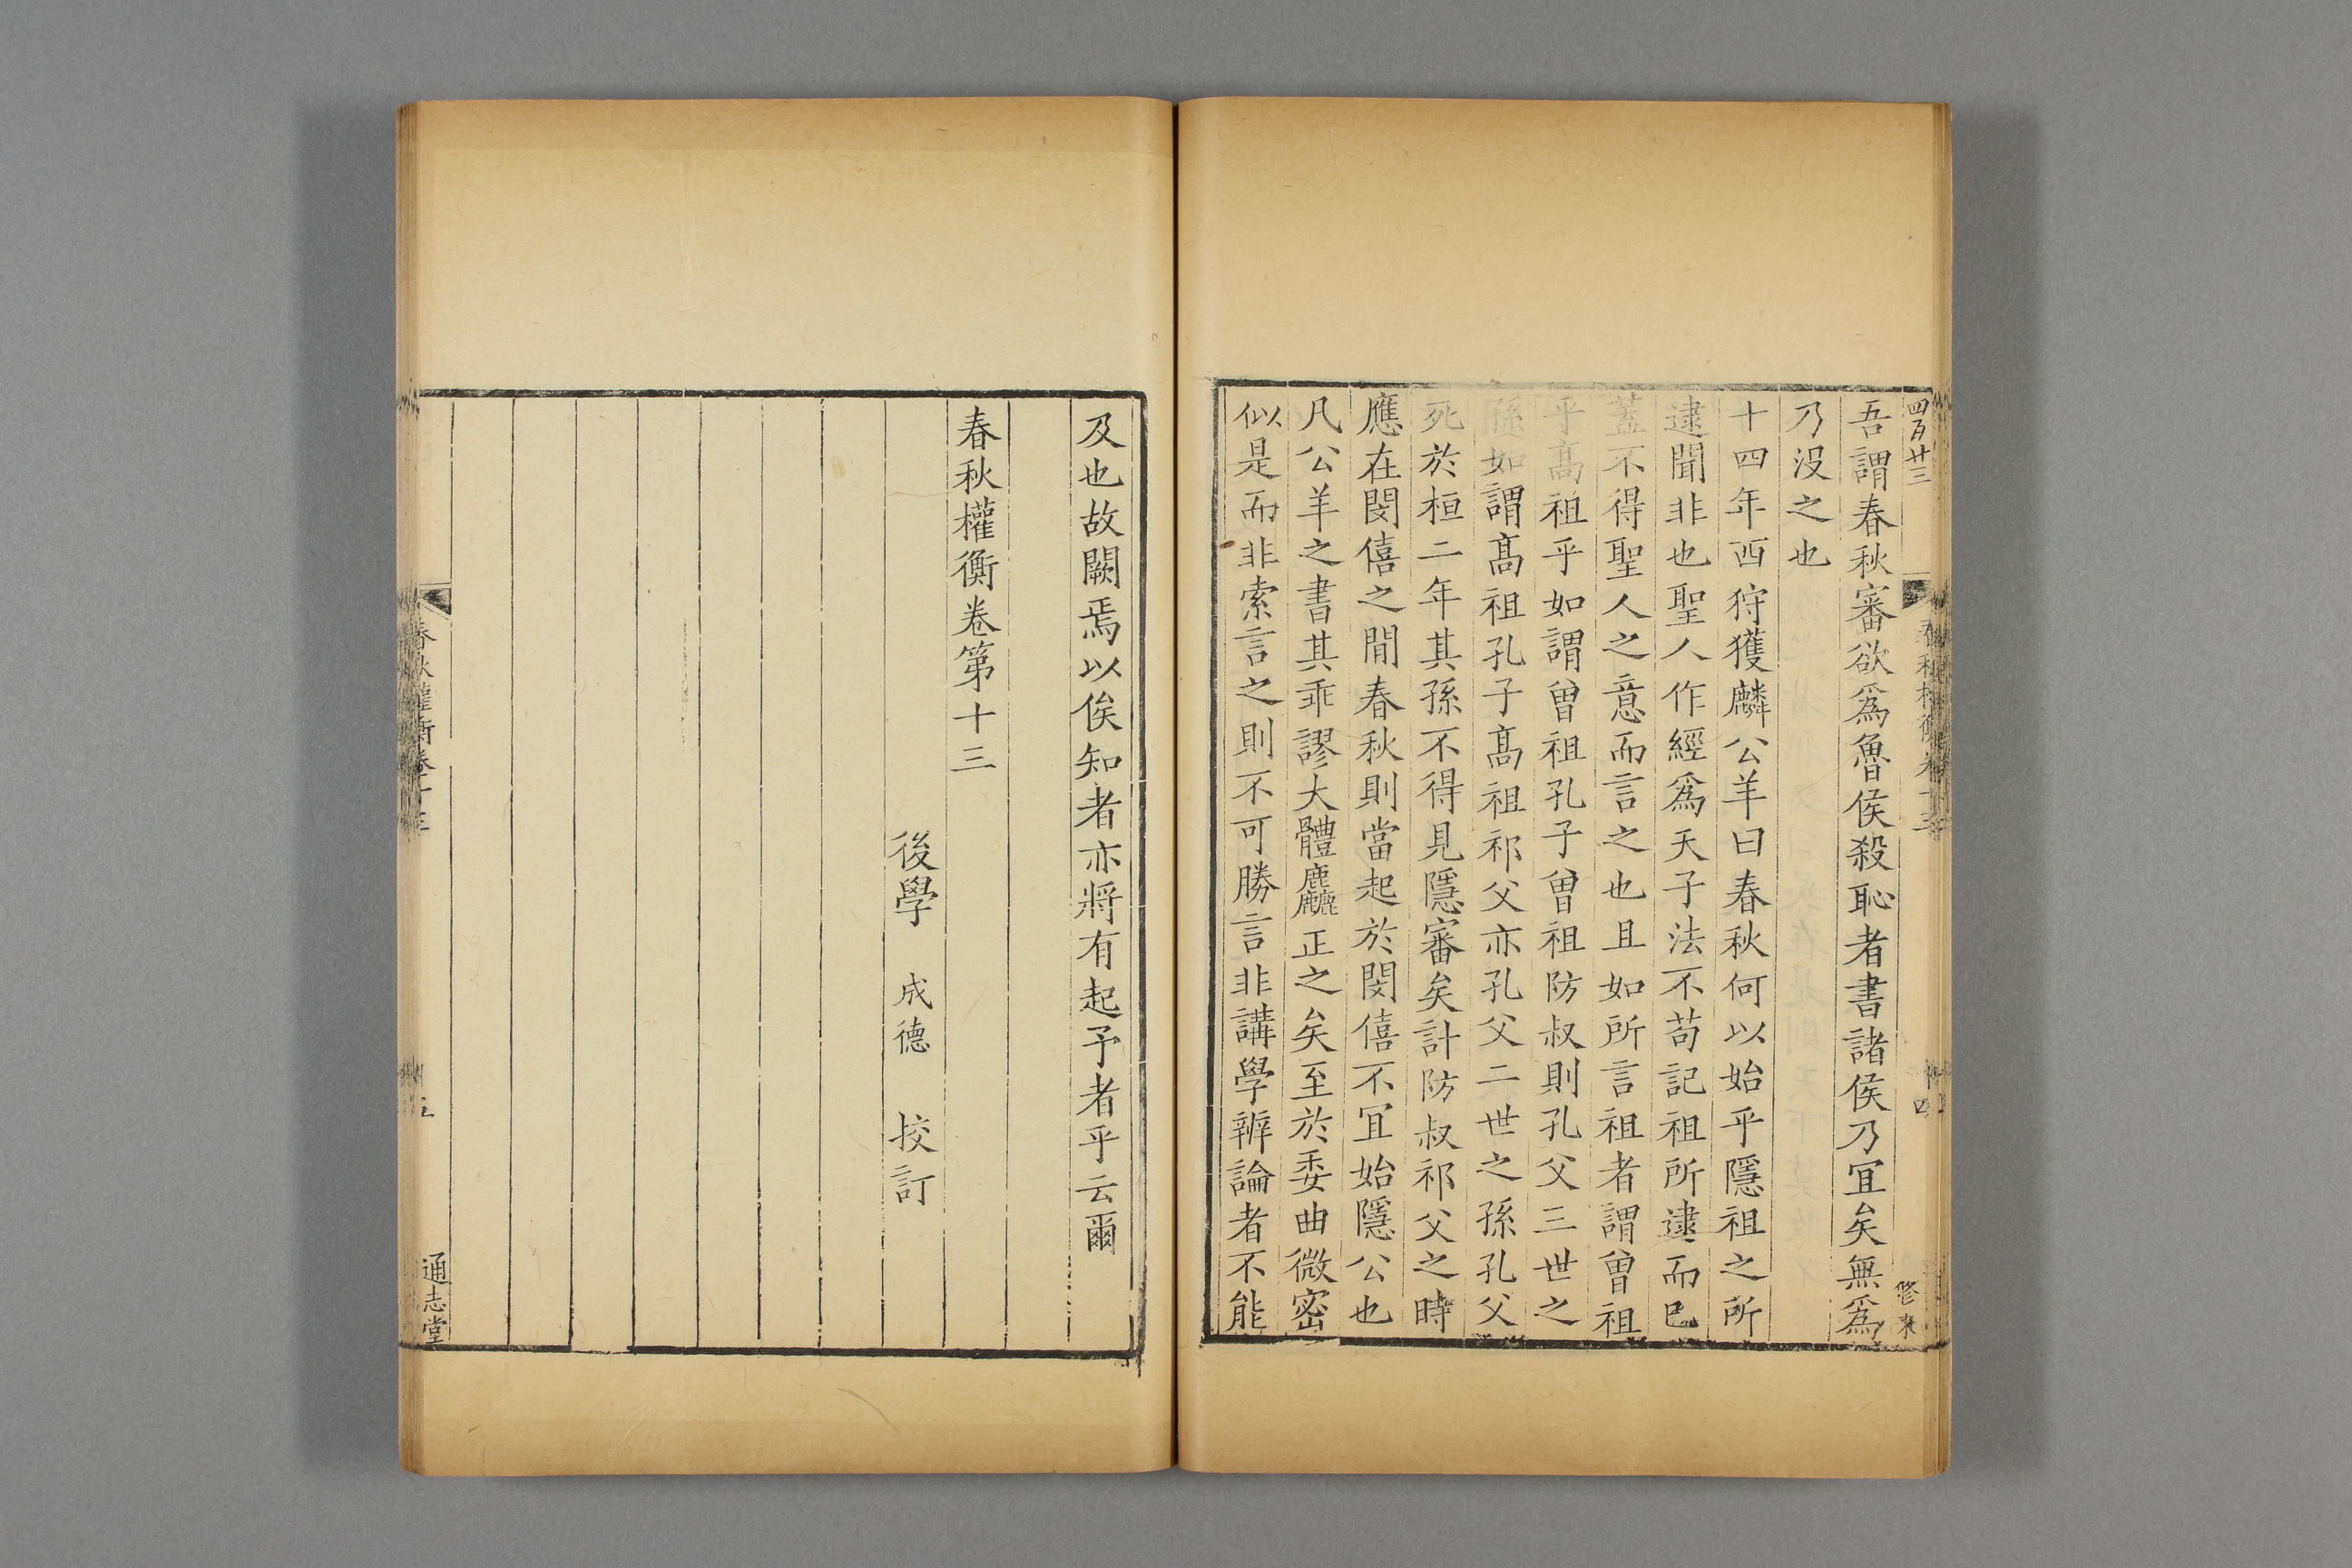 四百廿三
吾謂春秋審欲爲魯侯殺恥者書諸侯乃宜矣無爲
乃没之也
十四年西狩獲麟公羊曰春秋何以始乎隱祖之所
逮聞非也聖人作經爲天子法不苟記祖所逮而已
蓋不得聖人之意而言之也且如所言祖者謂曾祖
乎髙祖乎如謂曾祖孔子曾祖防叔則孔父三世之
孫如謂髙祖孔子髙祖祁父亦孔父二世之孫孔父
死於桓二年其孫不得見隱審矣計防叔祁父之時
應在閔僖之閒春秋則當起於閔僖不冝始隱公也
凡公羊之書其乖謬大體麤正之矣至於委曲微密
似是而非索言之則不可勝言非講學辨論者不能
及也故闕焉以俟知者亦將有起予者乎云爾
春秋權衡卷第十三
後學 成德 挍訂
春秋權衡卷十三
五
通志堂